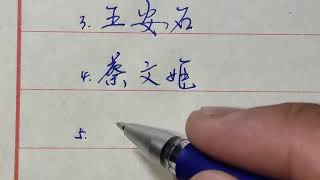 3. 王安石
4. 蔡文姬
5.